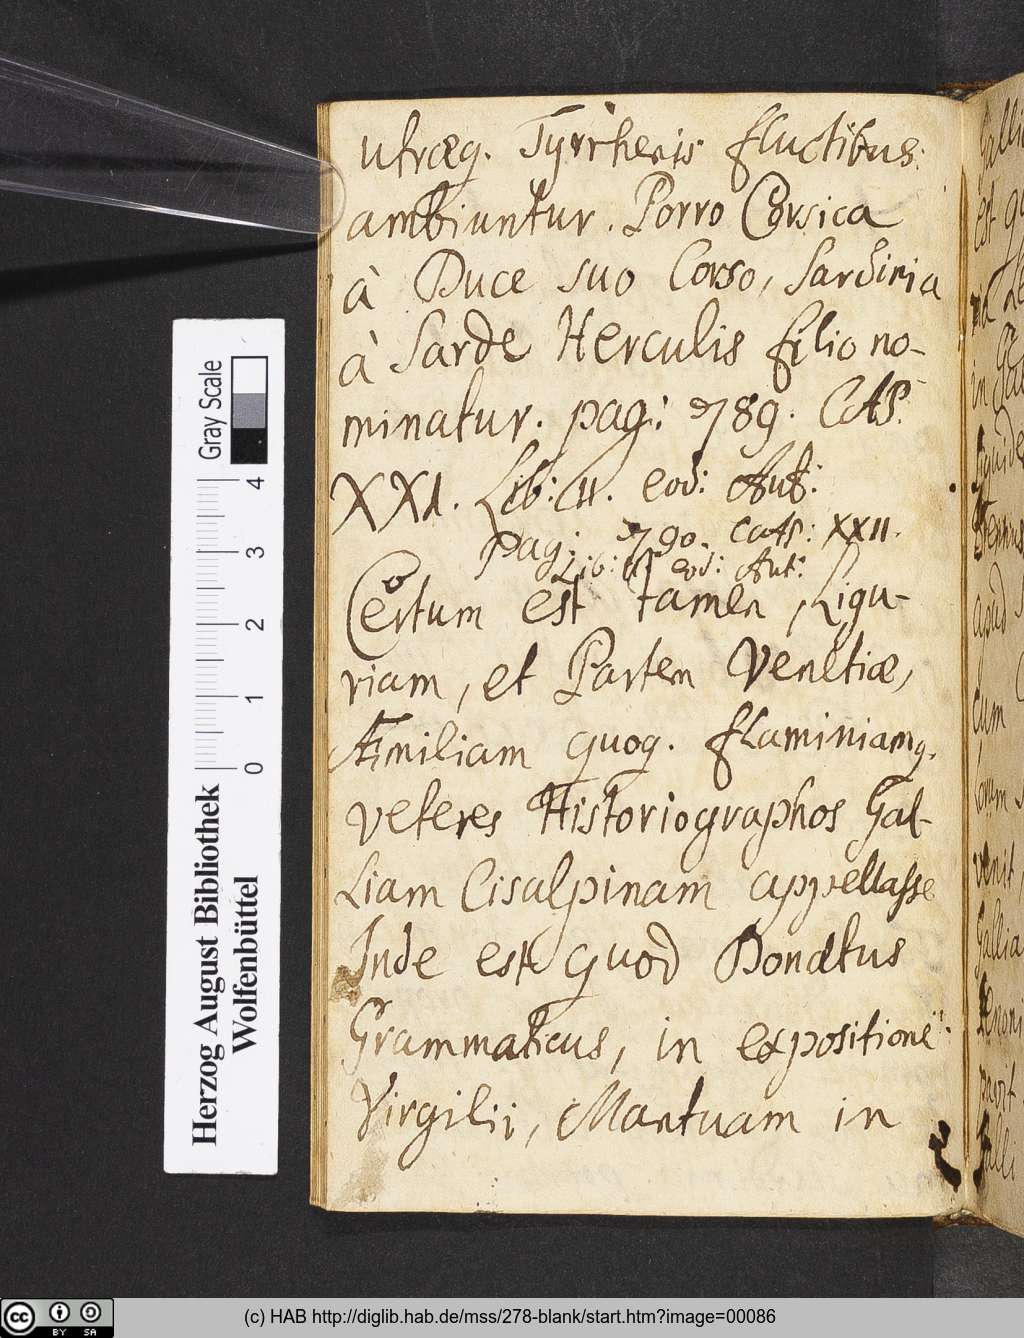 utraeq. Tyrrhenis fluctibus
ambiuntur. Porro Corsica
à Duce suo Corso, Sardinia
à Sarde Herculis filio no-
minatur. pag: 789. Cap:
XXI. Lib: II. eod: Aut:
pag: 790. Cap: XXII.
Lib: II eod: Aut:
Certum est tamen, Ligu-
riam, et Partem Venetiæ,
Æmiliam quoq. flaminiamq.
veteres Historiographos Gal-
liam Cisalpinam appellasse
Inde est quod Donatus
Grammaticus, in expositione
Virgilii, Mantuam in
Gray Scale
4
3
2
1
0
Herzog August Bibliothek
Wolfenbüttel
cc BY SA
(c) HAB http://diglib.hab.de/mss/278-blank/start.htm?image=00086